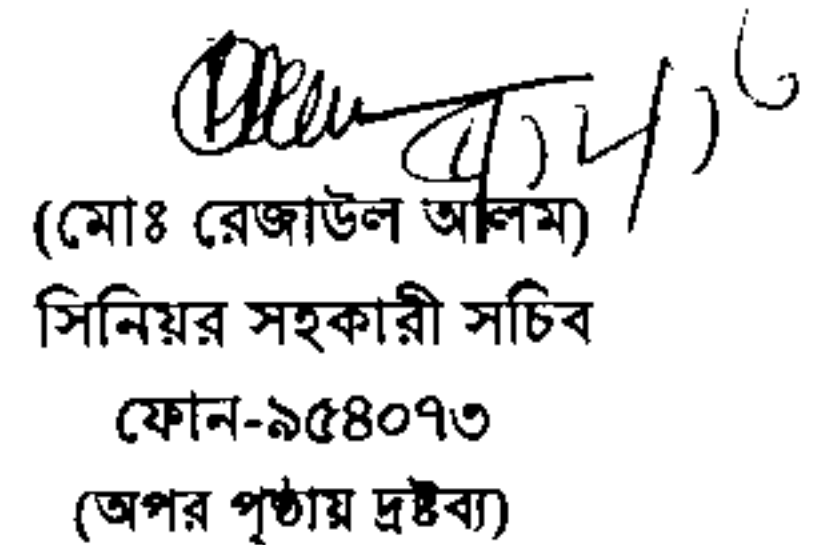 (মোঃ রেজাউল আলম)
সিনিয়র সহকারী সচিব
ফোন-৯৫৪০৭৩
(অপর পৃষ্ঠায় দ্রষ্টব্য)